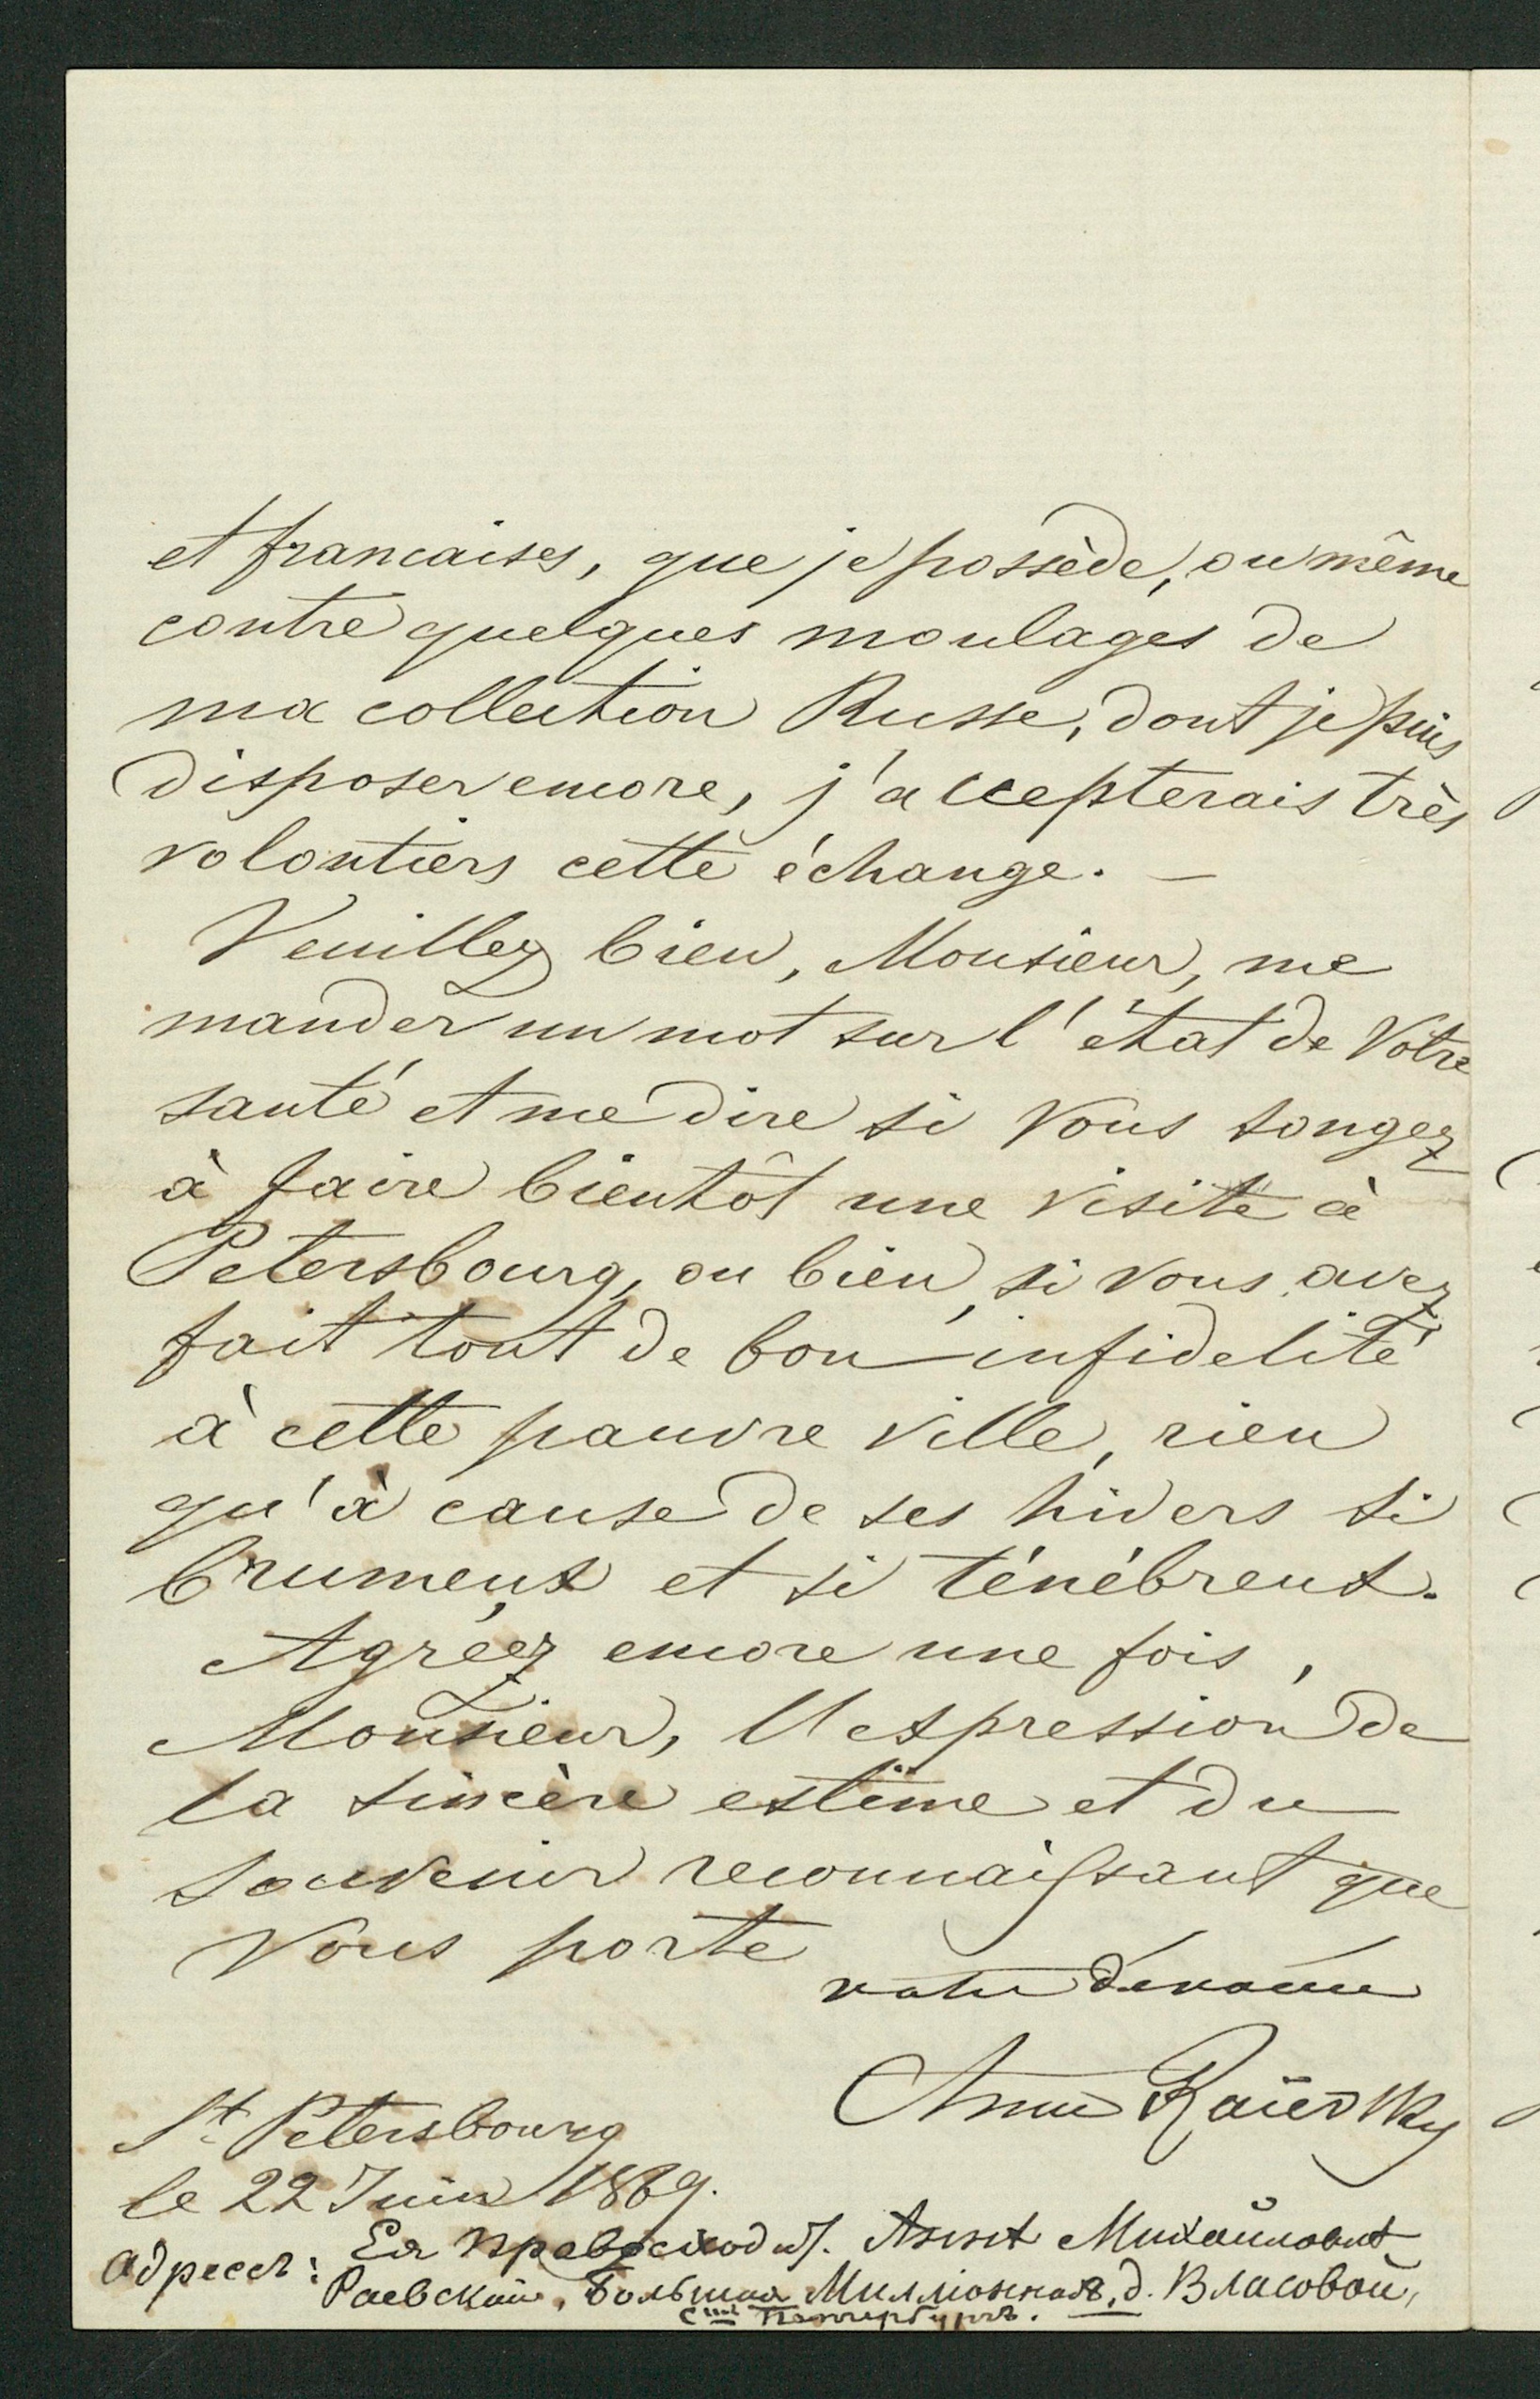 et francaises, que je possède, ou même
contre quelques moulages de
ma collection Russe, dont je puis
disposer encore, j'accepterais très
volontiers cette échange. —
Veuillez bien, Monsieur, me
mander un mot sur l'état de Votre
santé et me dire si Vous songez
à faire bientôt une visite à
Petersbourg, ou bien, si vous avez
fait tout de bon infidelité
à cette pauvre ville, rien
qu'à cause de ses hivers si
brumeux et si ténébreux.
Agréez encore une fois,
Monsieur, l'expression de
la sincère estime et du
souvenir reconnaissant que
Vous porte
votre dévouée
Anne Raiévsky
St Petersbourg
le 22 Juin 1869.
Адресъ: Ея Превосходит. Аннѣ Михайловнѣ
Раевской, Большая Миллiонная, д. Власовой,
С. Петербургъ.